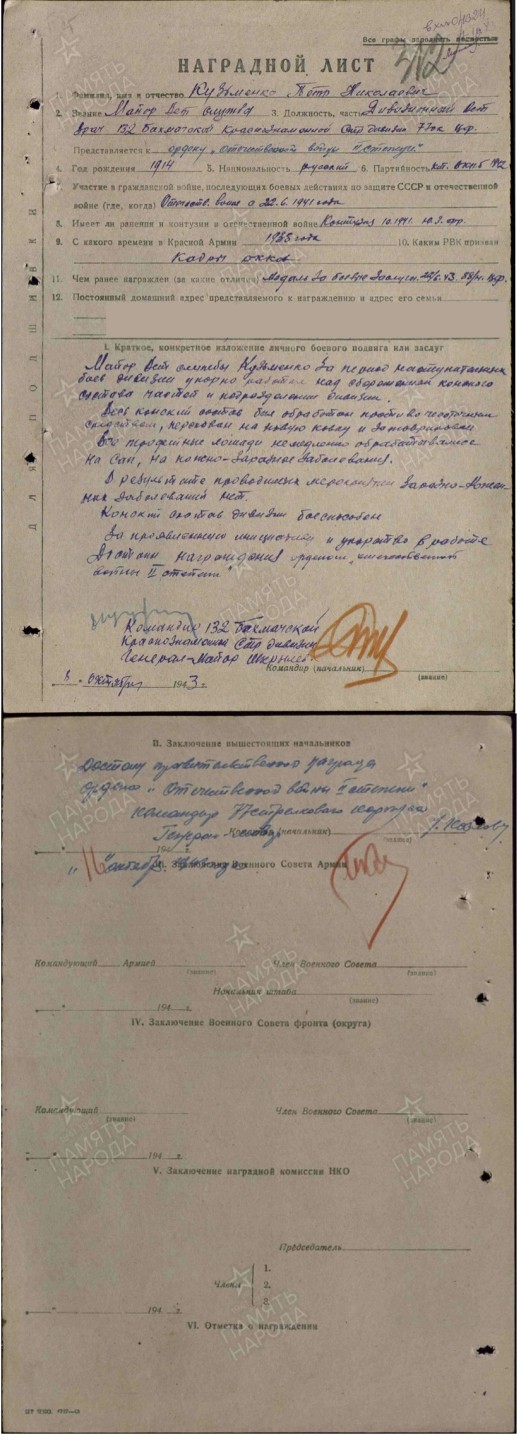 Все графы заполнять полностью
НАГРАДНОЙ ЛИСТ
1. Фамилия, имя и отчество Кузьменко Петр Николаевич
2. Звание Майор вет службы 3. Должность, часть Дивизионный вет
врач 132 Бахмачской Краснознаменной Стр дивизии 77ск ЦФ.
Представляется к ордену "Отечественной войны II степени"
4. Год рождения 1914 5. Национальность русский 6. Партийность ВКПб
7. Участие в гражданской войне, последующих боевых действиях по защите СССР и отечественной
войне (где, когда) Отечеств. война с 22.6.1941 года
8. Имеет ли ранения и контузии в отечественной войне Контузия 10.1941.
9. С какого времени в Красной Армии 1933 года 10. Каким РВК призван
Кадры
11. Чем ранее награжден (за какие отличия) Медаль За боевые Заслуги
12. Постоянный домашний адрес представляемого к награждению и адрес его семьи
I. Краткое, конкретное изложение личного боевого подвига или заслуг
Майор вет службы Кузьменко За период наступательных
боев дивизии упорно работал над сбережением конского
состава частей и подразделений дивизии.
Весь конский состав был обработан противочесоточным
средствами, перекован на новую ковку и затаврирован
Все трофейные лошади немедленно обрабатывались
на Сап, на кожно-Заразные Заболевания.
В результате проводимых мероприятий Заразно-Кожных
Заболеваний нет.
Конский состав дивизии боеспособен
За проявленную инициативу и упорство в работе
Достоин награждения орденом "отечественной
войны II степени"
Командир 132 Бахмачской
Краснознаменной Стр дивизии
Генерал-Майор Шкрылев
Командир (начальник)
(звание)
6 октября 1943 г.
ДЛЯ ПОДШИВКИ
II. Заключение вышестоящих начальников
Достоин правительственной награды
ордена "Отечественной войны II степени"
командир 77 стрелкового корпуса
Генерал
Командир (начальник)
(звание)
194 г.
"16" октября
III. Заключение Военного Совета Армии
Командующий Армией
(звание)
Член Военного Совета
(звание)
Начальник штаба
(звание)
194 г.
IV. Заключение Военного Совета фронта (округа)
Командующий
(звание)
Член Военного Совета
(звание)
194 г.
V. Заключение наградной комиссии НКО
Председатель
Члены
1.
2.
3.
194 г.
VI. Отметка о награждении
ПАМЯТЬ НАРОДА